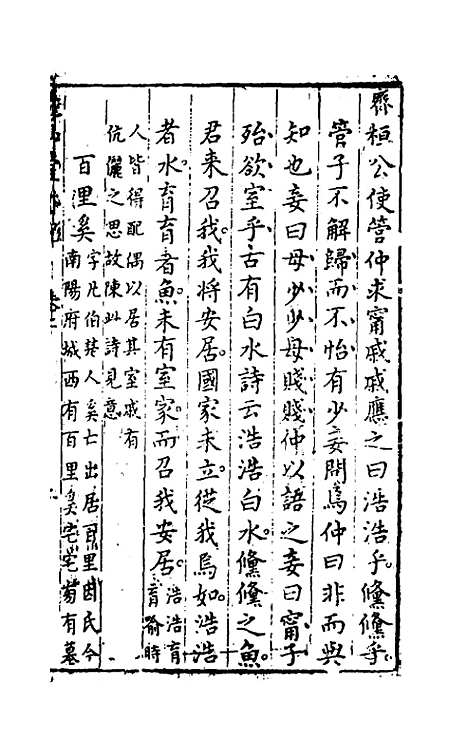 齊桓公使管仲求甯戚戚應之曰浩浩乎儵儵乎
管子不解歸而不怡有少妾問焉仲曰非而與
知也妾曰母少少母賤賤仲以語之妾曰甯子
殆欲室乎古有白水詩云浩浩白水儵儵之魚
君来召我我將安居國家未立從我焉如浩浩
者水育育者魚未有室家而召我安居浩浩育育喻時
人皆得配偶以居其室戚有
伉儷之思故陳此詩見意
百里奚字凡伯楚人奚亡出居百里因氏今
南陽府城西有百里奚宅宅旁有墓